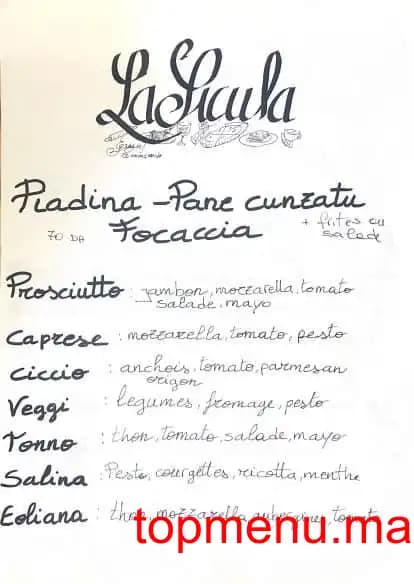 La Sicula
Piadina - Pane cunzatu
70 DH Focaccia + frites ou
salade
Prosciutto : jambon, mozzarella, tomato
salade, mayo
Caprese : mozzarella, tomato, pesto
Ciccio : anchois, tomato, parmesan
origan
Veggi : legumes, fromage, pesto
Tonno : thon, tomato, salade, mayo
Salina : Pesto, courgettes, ricotta, menthe
Eoliana : thon, mozzarella, aubergines, tomato
topmenu.ma